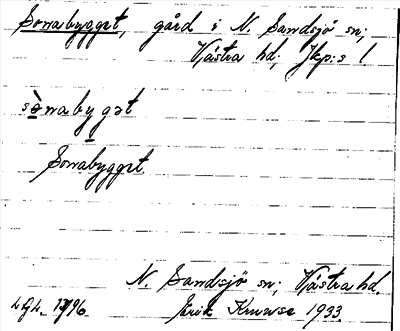 Sorrabygget, gård i N. Sandsjö sn;
Västra hd; Jkp:s l
sò̱rrabygət
Sorrabygget
N. Sandsjö sn; Västra hd.
Erik Kruuse 1933.